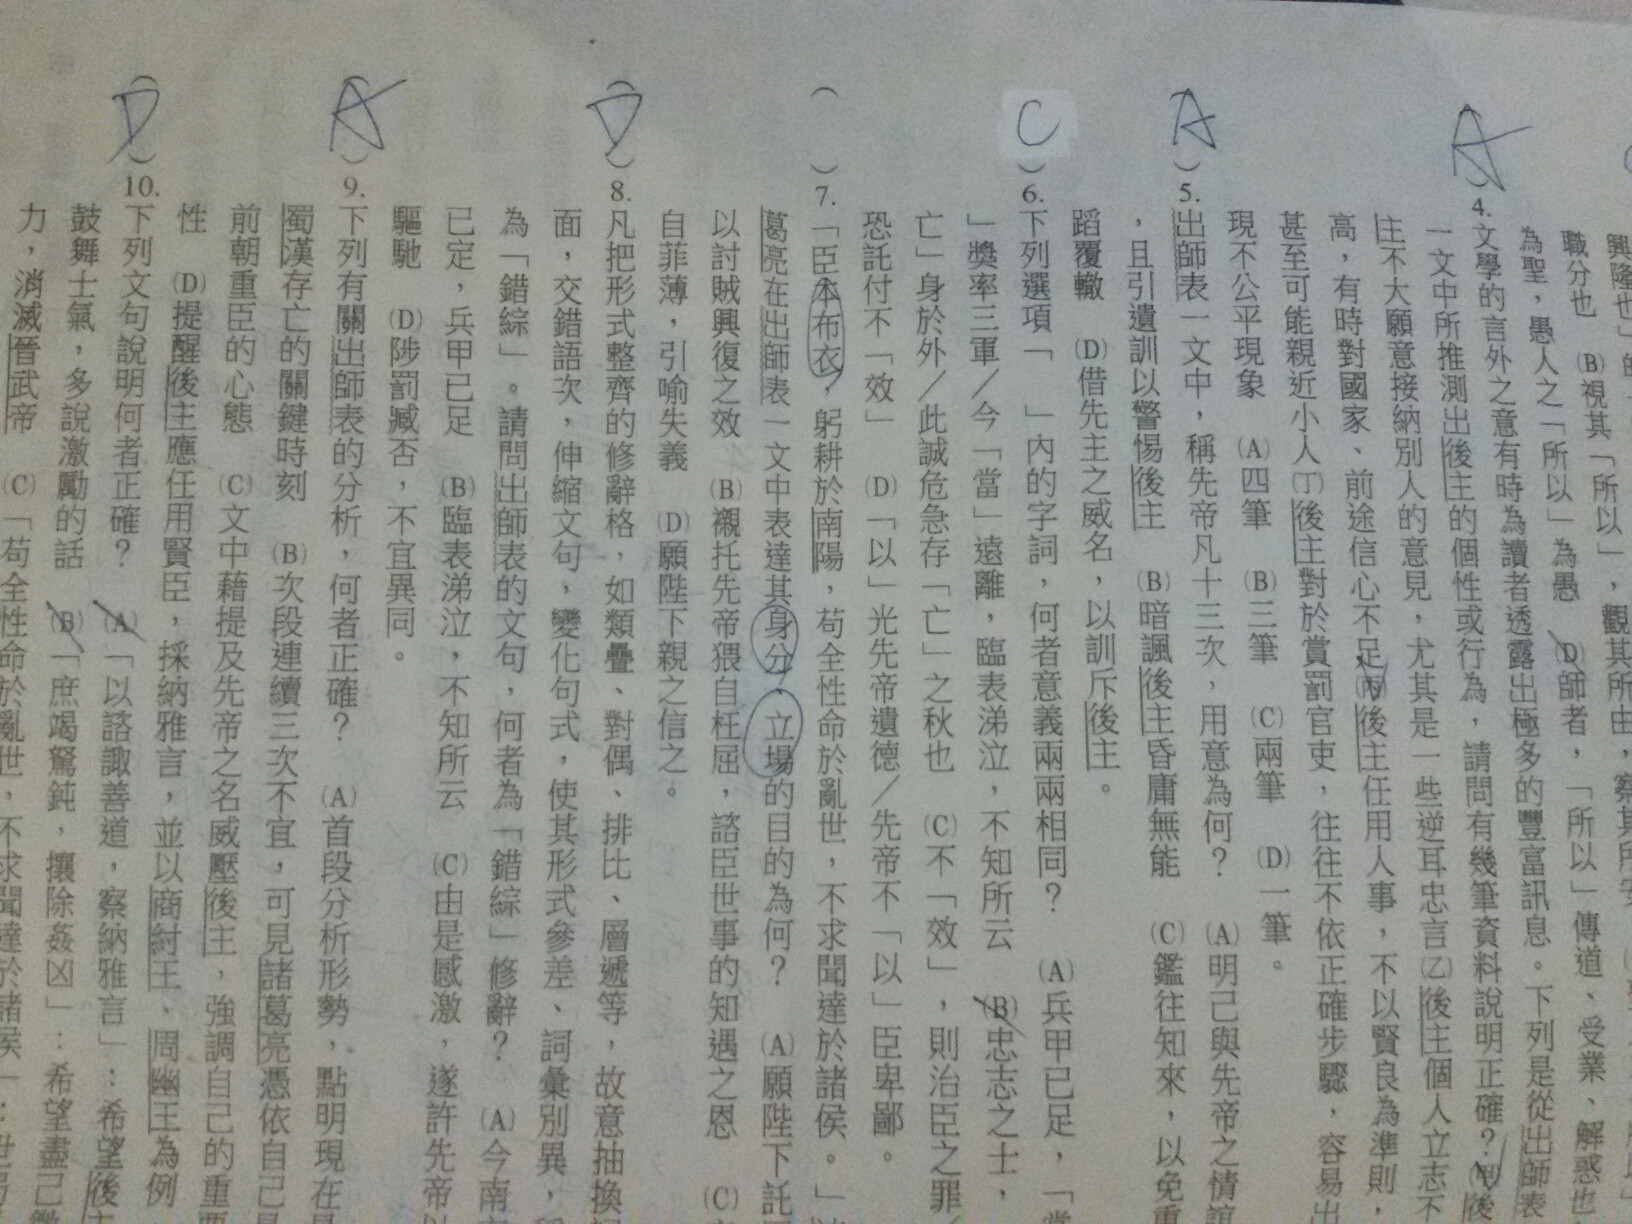 興隆也」的
職分也 (B)視其「所以」，觀其所由，察其所安
為聖，愚人之「所以」為愚 (D)師者，「所以」傳道、受業、解惑也
A
( )4.文學的言外之意有時為讀者透露出極多的豐富訊息。下列是從出師表
一文中所推測出後主的個性或行為，請問有幾筆資料說明正確？(甲)後
主不大願意接納別人的意見，尤其是一些逆耳忠言(乙)後主個人立志不
高，有時對國家、前途信心不足(丙)後主任用人事，不以賢良為準則，
甚至可能親近小人(丁)後主對於賞罰官吏，往往不依正確步驟，容易出
現不公平現象 (A)四筆 (B)三筆 (C)兩筆 (D)一筆。
A
( )5.出師表一文中，稱先帝凡十三次，用意為何？ (A)明己與先帝之情誼
，且引遺訓以警惕後主 (B)暗諷後主昏庸無能 (C)鑑往知來，以免重
蹈覆轍 (D)借先主之威名，以訓斥後主。
C
( )6.下列選項「 」內的字詞，何者意義兩兩相同？ (A)兵甲已足，「當
」獎率三軍／今「當」遠離，臨表涕泣，不知所云 (B)忠志之士，
亡」身於外／此誠危急存「亡」之秋也 (C)不「效」，則治臣之罪／
恐託付不「效」 (D)「以」光先帝遺德／先帝不「以」臣卑鄙。
( )7.「臣本布衣，躬耕於南陽，苟全性命於亂世，不求聞達於諸侯。」
葛亮在出師表一文中表達其身分、立場的目的為何？ (A)願陛下託
以討賊興復之效 (B)襯托先帝猥自枉屈，諮臣世事的知遇之恩 (C)
自菲薄，引喻失義 (D)願陛下親之信之。
D
( )8.凡把形式整齊的修辭格，如類疊、對偶、排比、層遞等，故意抽換
面，交錯語次，伸縮文句，變化句式，使其形式參差、詞彙別異，
為「錯綜」。請問出師表的文句，何者為「錯綜」修辭？ (A)今南
已定，兵甲已足 (B)臨表涕泣，不知所云 (C)由是感激，遂許先帝以
驅馳 (D)陟罰臧否，不宜異同。
A
( )9.下列有關出師表的分析，何者正確？ (A)首段分析形勢，點明現在是
蜀漢存亡的關鍵時刻 (B)次段連續三次不宜，可見諸葛亮憑依自己
前朝重臣的心態 (C)文中藉提及先帝之名威壓後主，強調自己的重要
性 (D)提醒後主應任用賢臣，採納雅言，並以商紂王、周幽王為例
D
( )10.下列文句說明何者正確？ (A)「以諮諏善道，察納雅言」：希望後主
鼓舞士氣，多說激勵的話 (B)「庶竭駑鈍，攘除姦凶」：希望盡己微
力，消滅晉武帝 (C)「苟全性命於亂世，不求聞達於諸侯」：